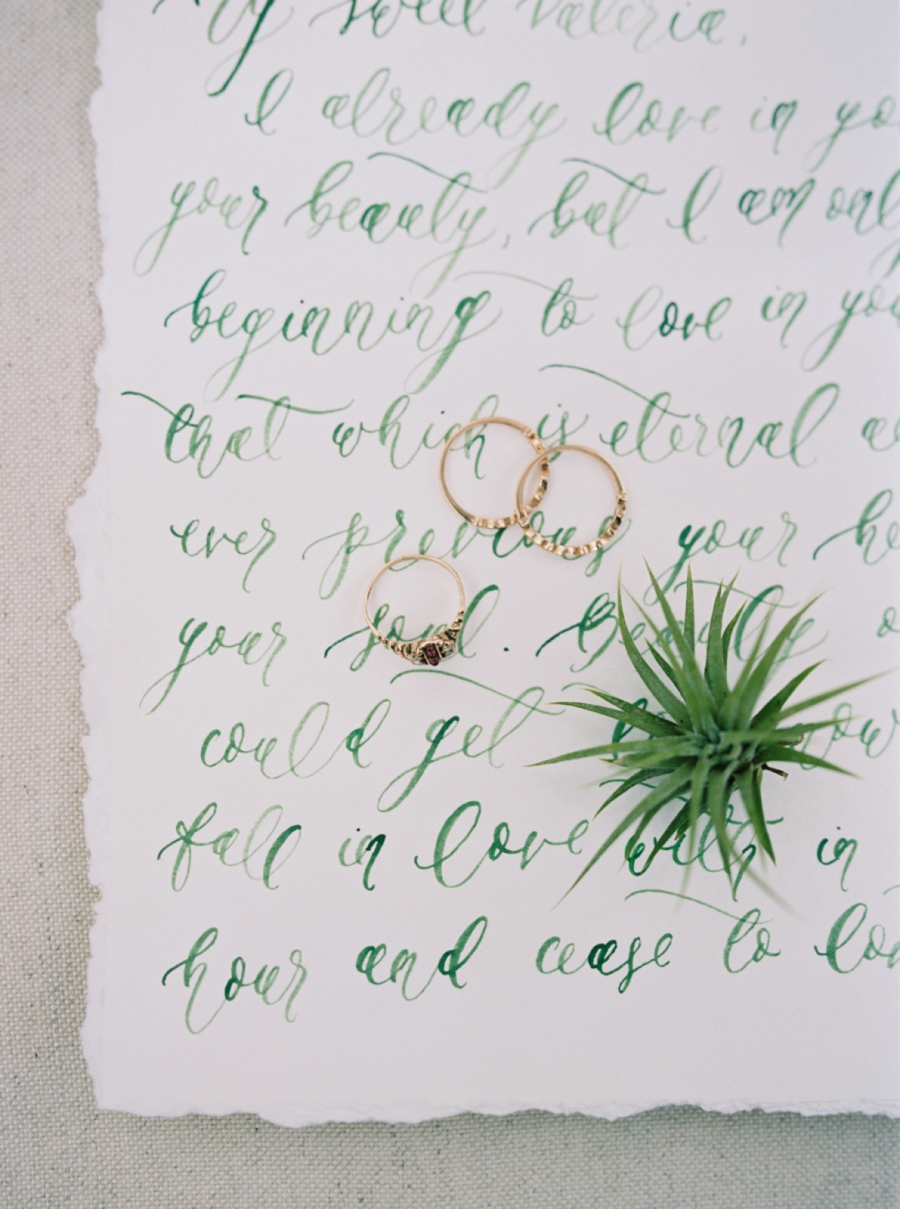 My sweet Valeria,
I already love in yo
your beauty, but I am onl
beginning to love in you
that which is eternal a
ever precious your he
your soul. Beauty o
could get to
fall in love with in
hour and cease to lov